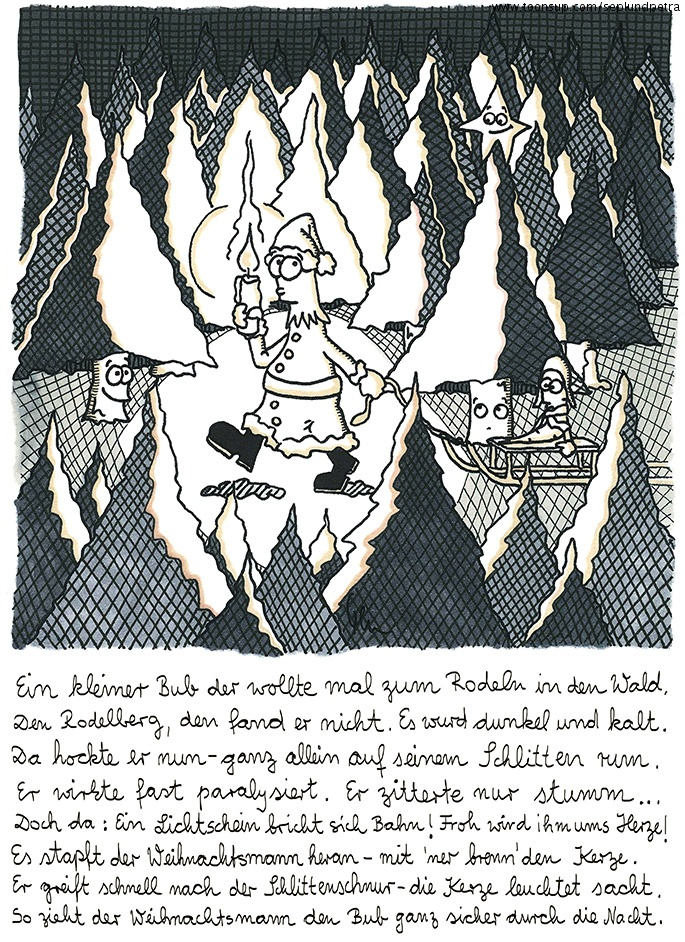 www.toonsup.com/seplundpetra
Ein kleiner Bub der wollte mal zum Rodeln in den Wald.
Den Rodelberg, den fand er nicht. Es wurd dunkel und kalt.
Da hockte er nun - ganz allein auf seinem Schlitten rum.
Er wirkte fast paralysiert. Er zitterte nur stumm...
Doch da: Ein Lichtschein bricht sich Bahn! Froh wird ihm ums Herze!
Es stapft der Weihnachtsmann heran - mit 'ner brenn'den Kerze.
Er greift schnell nach der Schlittenschnur - die Kerze leuchtet sacht.
So zieht der Weihnachtsmann den Bub ganz sicher durch die Nacht.